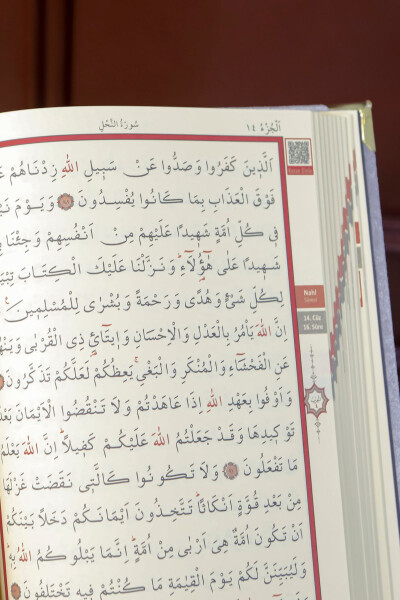 سُورَةُ النَّحْلِ
اَلْجُزْءُ ١٤
اَلَّذ۪ينَ كَفَرُوا وَصَدُّوا عَنْ سَب۪يلِ اللّٰهِ زِدْنَاهُمْ
فَوْقَ الْعَذَابِ بِمَا كَانُوا يُفْسِدُونَ ﴿٨٨﴾ وَيَوْمَ
ف۪ي كُلِّ اُمَّةٍ شَه۪يداً عَلَيْهِمْ مِنْ اَنْفُسِهِمْ وَجِئْنَا
شَه۪يداً عَلٰى هٰٓؤُ۬لَٓاءِۜ وَنَزَّلْنَا عَلَيْكَ الْكِتَابَ
لِكُلِّ شَيْءٍ وَهُدًى وَرَحْمَةً وَبُشْرٰى لِلْمُسْلِم۪ينَ
اِنَّ اللّٰهَ يَأْمُرُ بِالْعَدْلِ وَالْاِحْسَانِ وَا۪يتَٓائِ ذِي الْقُرْبٰى
عَنِ الْفَحْشَٓاءِ وَالْمُنْكَرِ وَالْبَغْيِۚ يَعِظُكُمْ لَعَلَّكُمْ تَذَكَّرُونَ
وَاَوْفُوا بِعَهْدِ اللّٰهِ اِذَا عَاهَدْتُمْ وَلَا تَنْقُضُوا الْاَيْمَانَ
تَوْك۪يدِهَا وَقَدْ جَعَلْتُمُ اللّٰهَ عَلَيْكُمْ كَف۪يلاًۜ اِنَّ اللّٰهَ
مَا تَفْعَلُونَ ﴿٩١﴾ وَلَا تَكُونُوا كَالَّت۪ي نَقَضَتْ غَزْلَهَا
مِنْ بَعْدِ قُوَّةٍ اَنْكَاثاًۜ تَتَّخِذُونَ اَيْمَانَكُمْ دَخَلاً بَيْنَكُمْ
اَنْ تَكُونَ اُمَّةٌ هِيَ اَرْبٰى مِنْ اُمَّةٍۜ اِنَّمَا يَبْلُوكُمُ اللّٰهُ بِه۪ۜ
وَلَيُبَيِّنَنَّ لَكُمْ يَوْمَ الْقِيٰمَةِ مَا كُنْتُمْ ف۪يهِ تَخْتَلِفُونَ
Nahl
Suresi
14. Cüz
16. Sûre